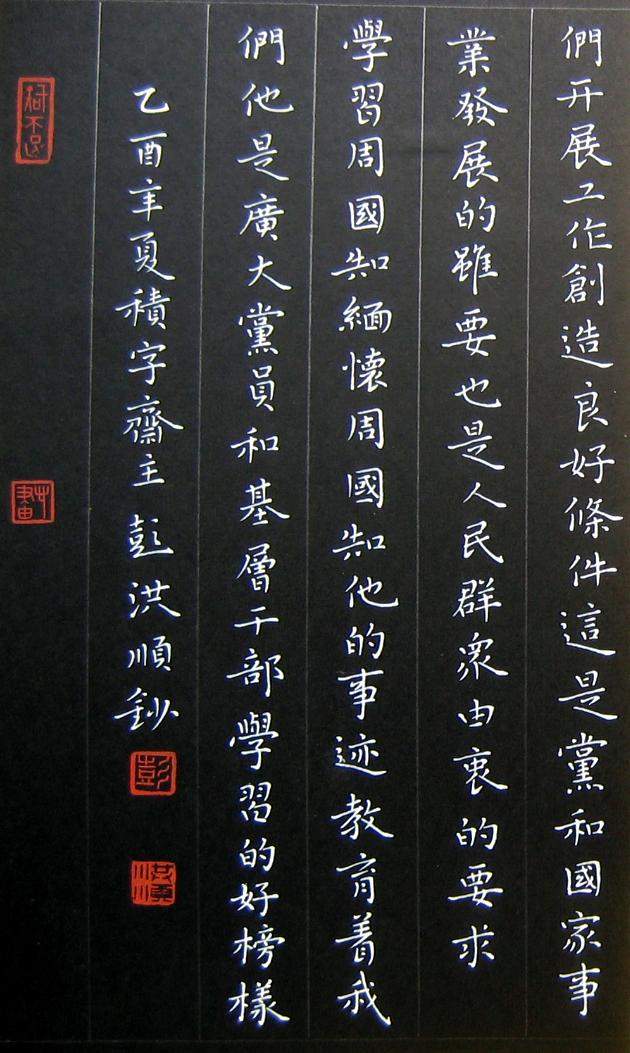 們开展工作創造良好條件這是黨和國家事
業發展的雖要也是人民群衆由衷的要求
學習周國知緬懷周國知他的事迹教育着我
們他是廣大黨員和基層干部學習的好榜樣
乙酉年夏積字齋主彭洪順鈔
彭
洪順
知不足